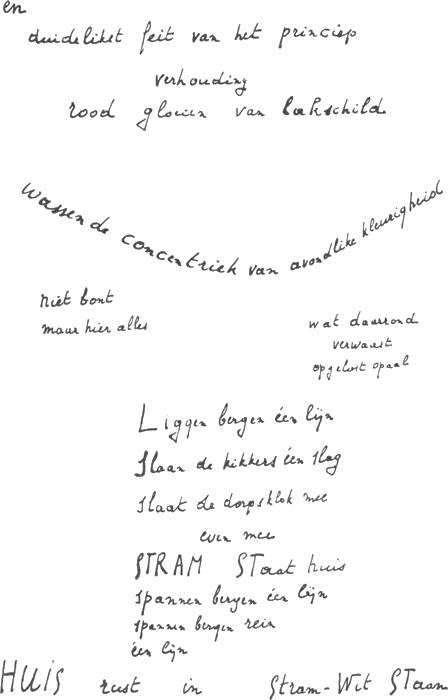 en
duidelikst feit van het princiep
verhouding
rood gloeien van lakschild
wassende concentriek van avondlike kleurigheid
niet bont
maar hier alles
wat daarrond
verwaast
opgelost opaal
Liggen bergen één lijn
Slaan de kikkers één slag
slaat de dorpsklok mee
even mee
STRAM STaat huis
spannen bergen één lijn
spannen bergen rein
één lijn
HUIS rust in Stram-Wit STaan